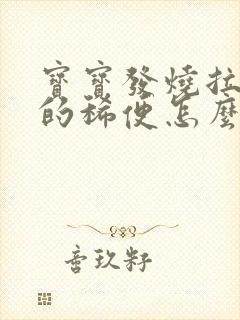 寶寶發燒拉
的稀便怎麼
童玖籽